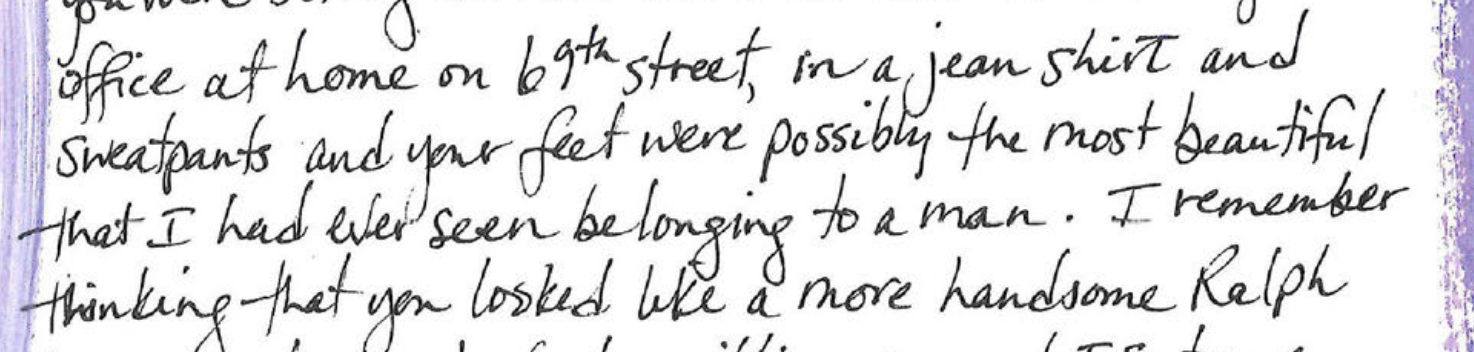 office at home on 69th street, in a jean shirt and
sweatpants and your feet were possibly the most beautiful
that I had ever seen belonging to a man. I remember
thinking that you looked like a more handsome Ralph